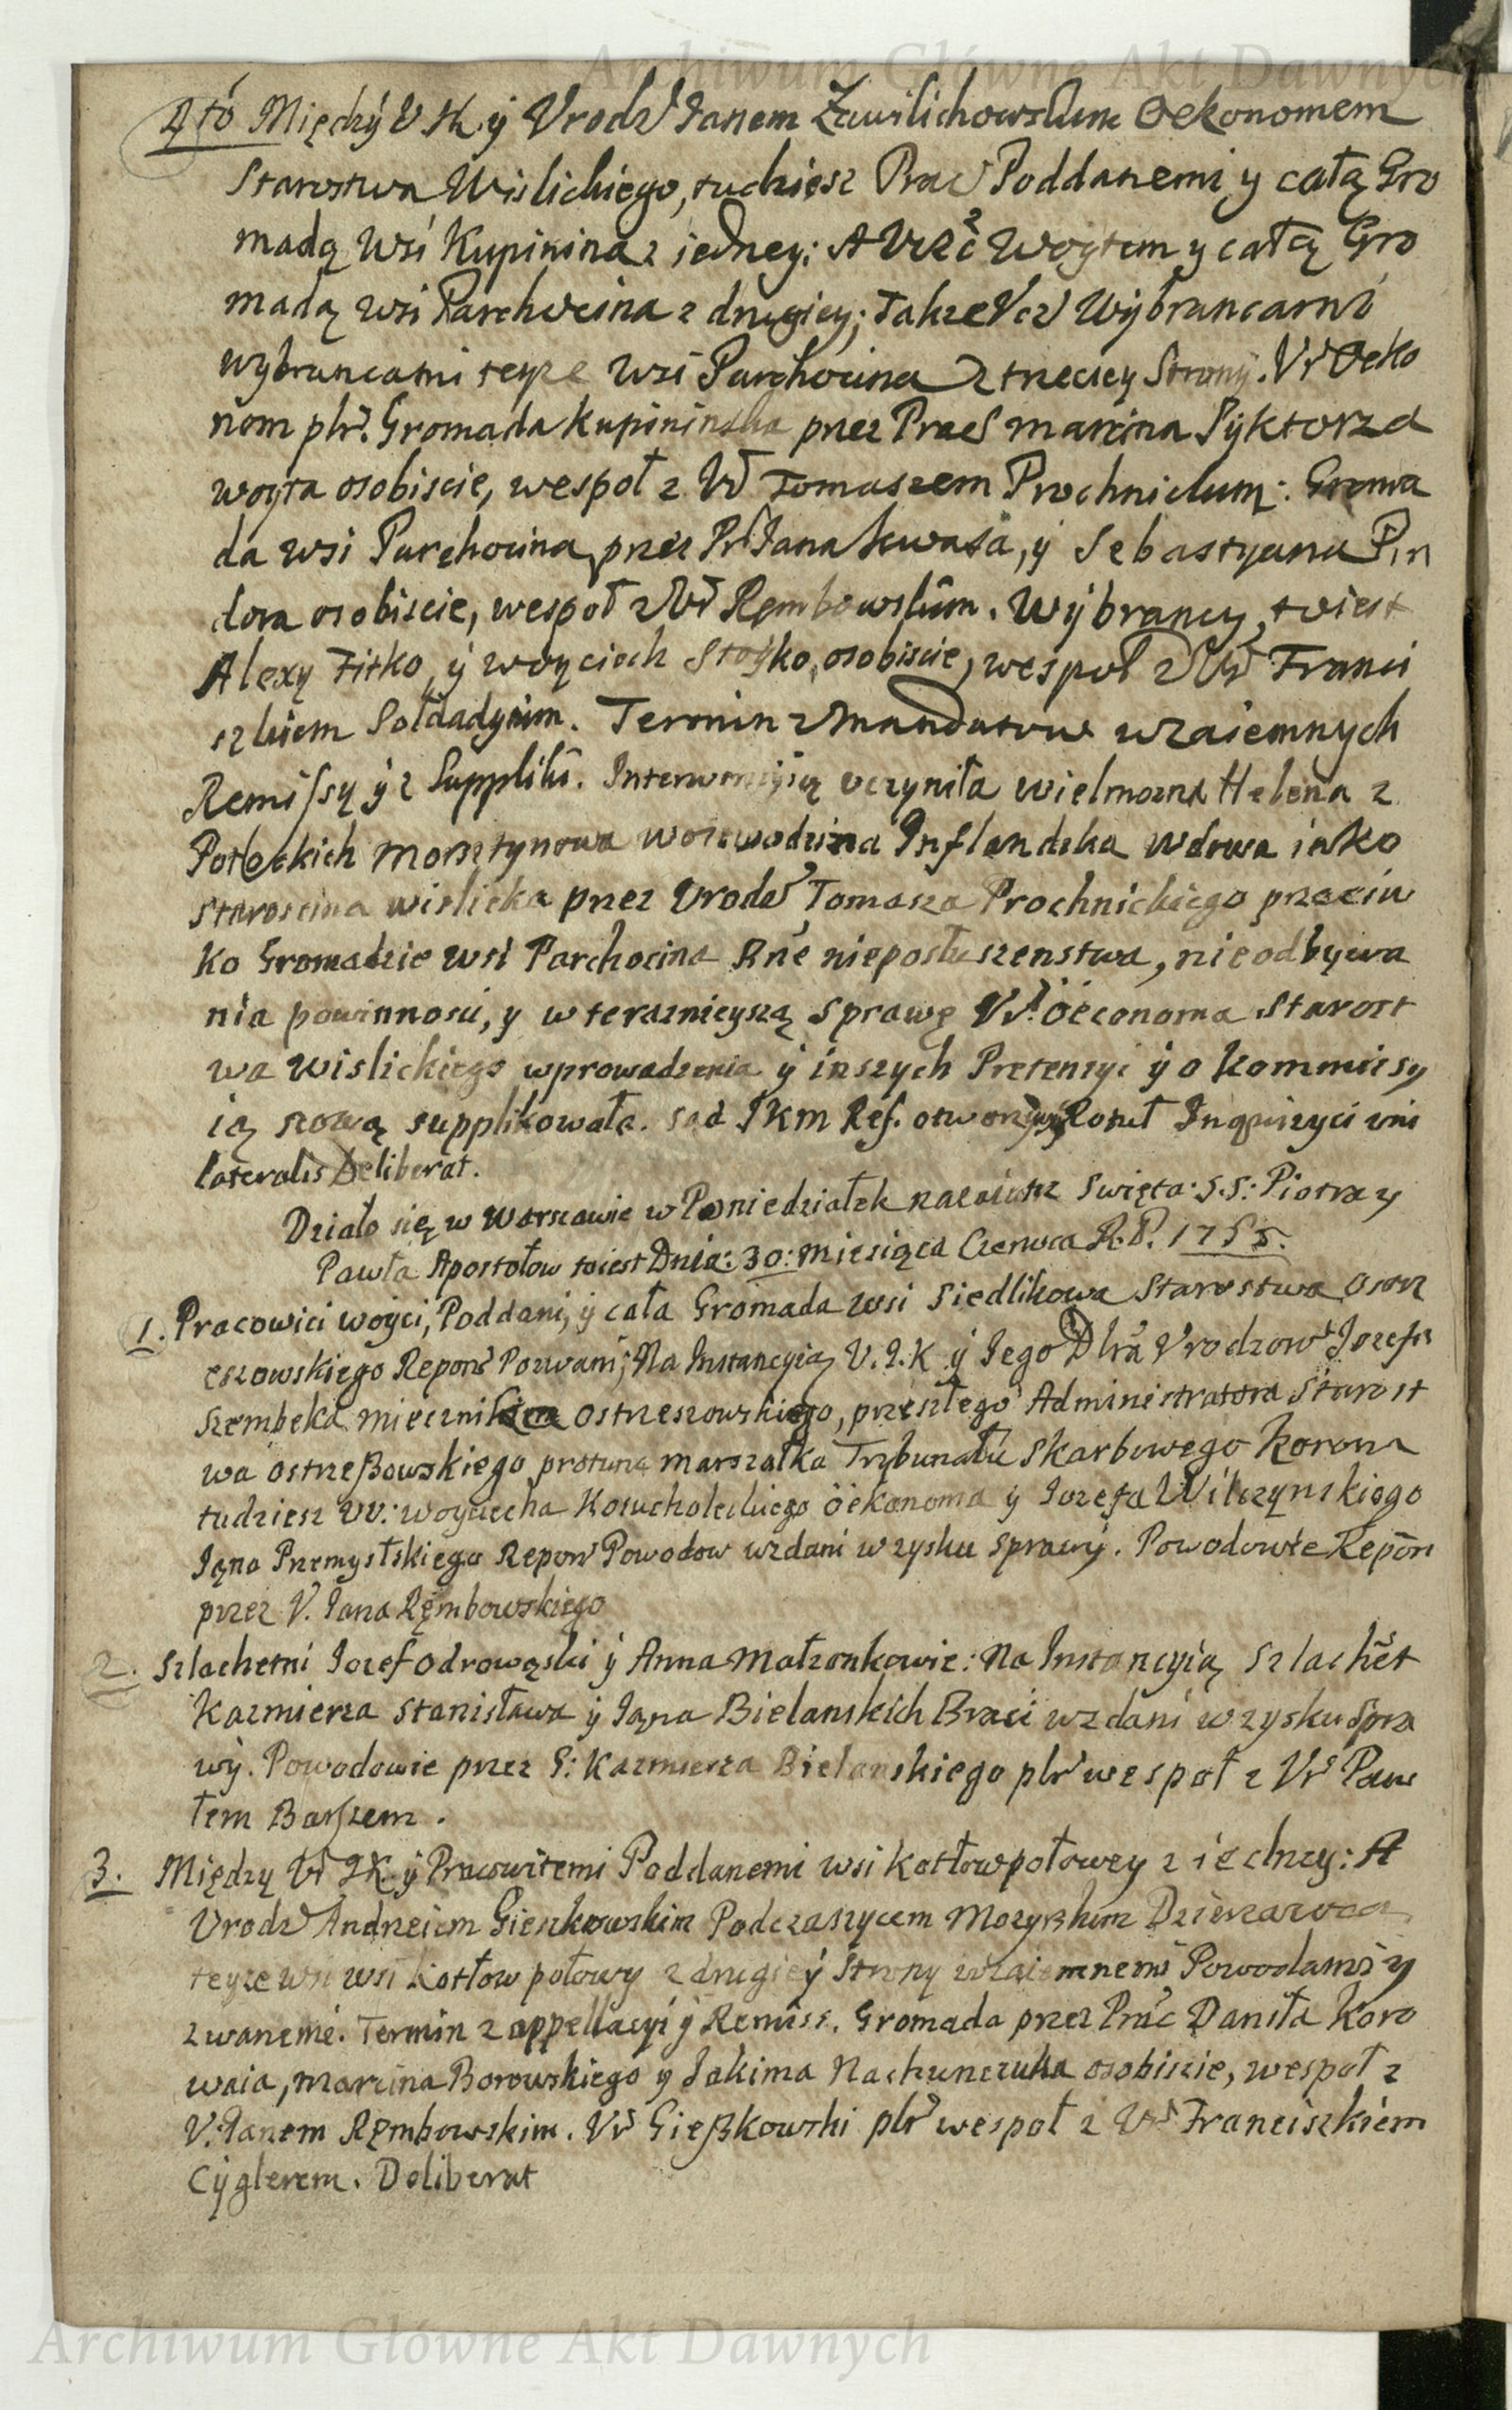 Archiwum Główne Akt Dawnych
4to Między U JK y Urodź Janem Zawilichowskim Oekonomem
Starostwa Wislickiego, tudziesz Prac Poddanemi y całą Gro
madą Wsi Kupinina z iedney; A Ucz Woytem y całą Gro
madą wsi Parchocina z drugiey; Takze Ucz Wybrancami
wybrancami teyze wsi Parchocina z trzeciey Strony. Ur Oeko
nom plr. Gromada Kupininska przez Prac Marcina Syktorza
woyta osobiscie, wespoł z Ur Tomaszem Prochnickim: Groma
da wsi Parchocina przez Pr Jana Kwasa, y Sebastyana Pin
dora osobiscie, wespoł z Ur Rembowskim. Wybrancy, to iest
Alexy Fitko, y Woyciech Stoyko, osobiscie, wespoł z Ur Franci
szkiem Sołdadynim. Termin z Mandatow wzaiemnych
Remissy y z Suppliki. Interwencyią uczyniła wielmozna Helena z
Potockich Morsztynowa Woiewodzina Inflandska wdowa iako
Staroscina wislicka przez Urodź Tomasza Prochnickiego przeciw
ko Gromadzie wsi Parchocina Rne nieposłuszenstwa, nieodbywa
nia powinnosci, y w teraznieyszą sprawę Ur. Oeconoma Starost
wa Wislickiego wprowadzenia y inszych Pretensyi y o Kommissy
ią nową supplikowała. Sąd JKM Ref. otworzywszy Rotuł Inquizycii uni
lateralis Deliberat.
Działo się w Warszawie w Poniedziałek nazaiutrz Swięta: S.S: Piotra y
Pawła Apostołow toiest Dnia: 30: Miesiąca Czerwca R. P. 1755.
1. Pracowici woyci, Poddani, y cała Gromada wsi Siedlikowa Starostwa Ostrz
eszowskiego Repon Pozwani; Na Instancyią U. J. K y Jego Dlra Urodzow Jozefa
Szembeka Miecznika Ostrzeszowskiego, przeszłego Administratora Starost
wa Ostrzeszowskiego protunc Marszałka Trybunału Skarbowego Koronn
tudziesz UU: Woyciecha Kosucholeckiego Oekonoma y Jozefa Wilczynskiego
Jana Przemyslskiego Repon Powodow wzdani w zysku sprawy. Powodowie Repon
przez U. Jana Rembowskiego
2. Szlachetni Jozef Odrowąski y Anna Małzonkowie: Na Instancyią Szlachet
Kazmierza Stanisława y Jana Bielanskich Braci wzdani w zysku Spra
wy. Powodowie przez S: Kazmierza Bielanskiego plr wespoł z Ur Paw
łem Barszem.
3. Między Ur JK y Pracowitemi Poddanemi wsi Kotłow połowy z iedney: A
Urodź Andrzeiem Gieszkowskim Podczaszycem Mozyrskim Dzierzawca
teyze wsi wsi Kotłow połowy z drugiey Strony wzaiemnemi Powodami y
zwanemi. Termin z appellacyi y Remiss. Gromada przez Prac Daniła Koro
waia, Marcina Borowskiego y Jakima Nachunczuka osobiscie, wespoł z
U. Janem Rembowskim. Ur Gieszkowski plr wespoł z Ur Franciszkiem
Cyglerem. Deliberat
Archiwum Główne Akt Dawnych